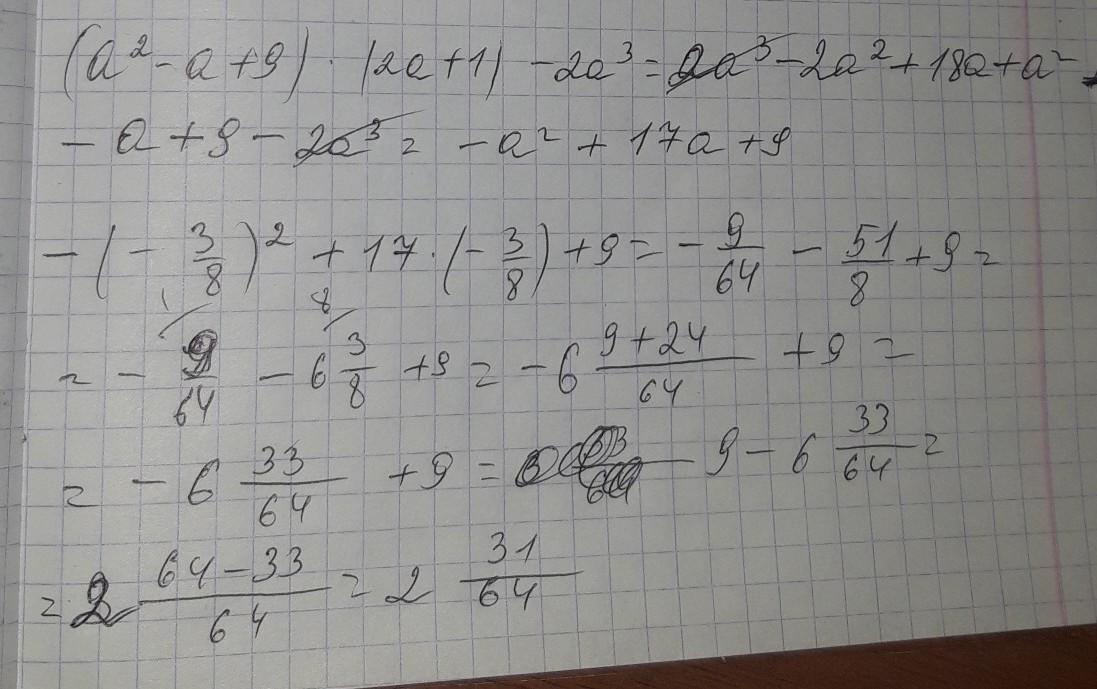 (a² - a + 9) · (2a + 1) - 2a³ = 2a³ - 2a² + 18a + a² -
- a + 9 - 2a³ = - a² + 17a + 9
- (- 3/8)² + 17 · (- 3/8) + 9 = - 9/64 - 51/8 + 9 =
= - 9/64 - 6 3/8 + 9 = - 6 (9 + 24)/64 + 9 =
= - 6 33/64 + 9 = 9 - 6 33/64 =
= 2 (64 - 33)/64 = 2 31/64